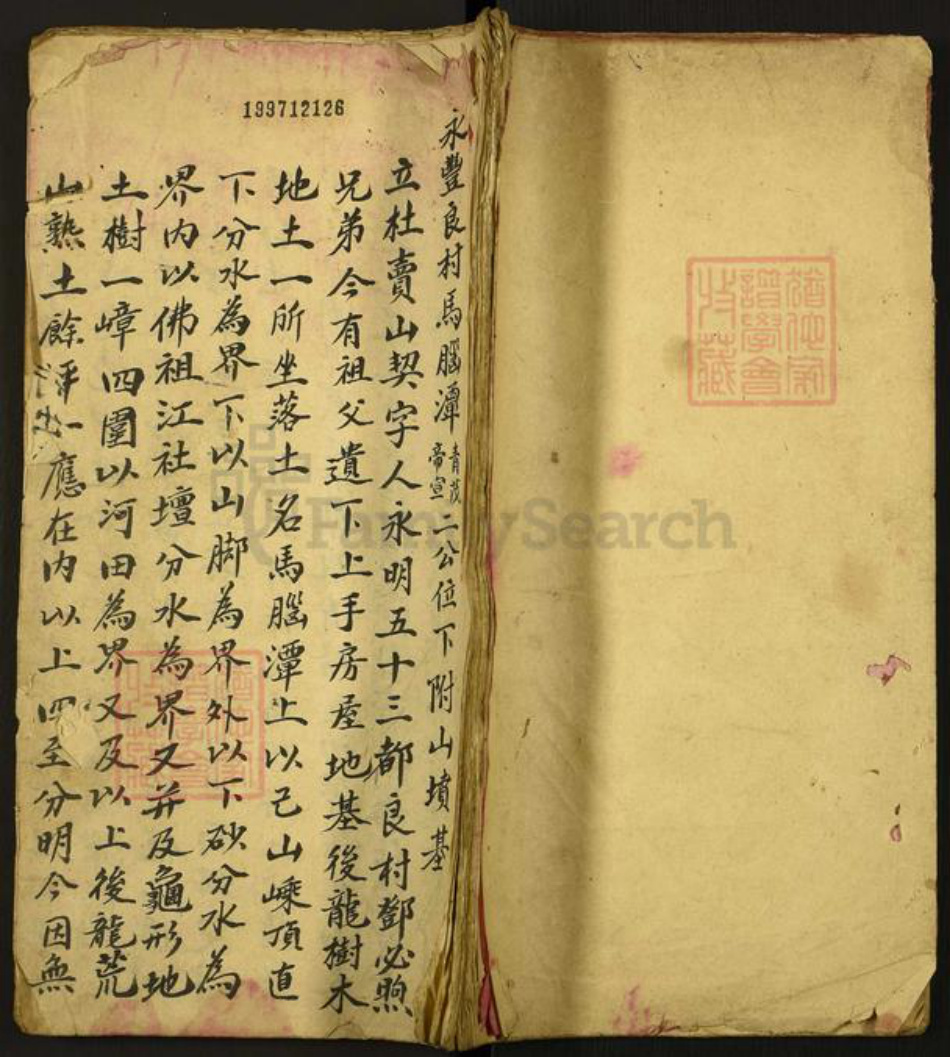 永豐良村馬腦潭青茂帝宣二公位下附山墳基
立杜賣山契字人永明五十三都良村鄧必煦
兄弟今有祖父遺下上手房屋地基後龍樹木
地土一所坐落土名馬腦潭上以己山嵊頂直
下分水為界下以山腳為界外以下砂分水為
界內以佛祖江社壇分水為界又并及龜形地
土樹一嶂四圍以河田為界又及以上後龍荒
山熟土餘坪一應在內以上四至分明今因無
199712126
譜學會
收藏
FamilySearch